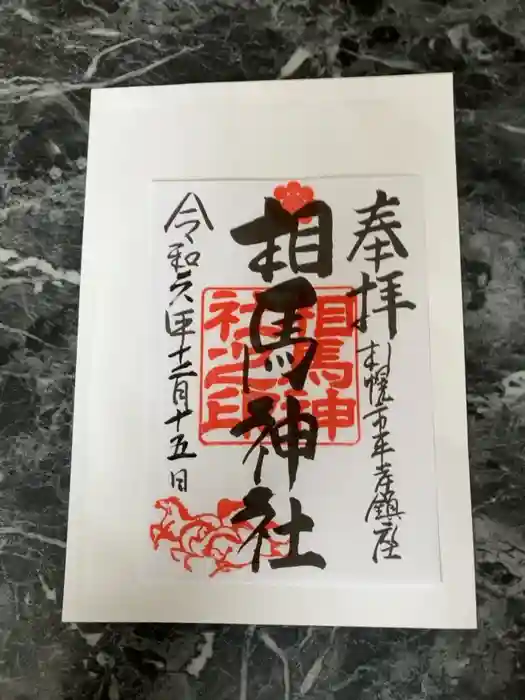 奉拝
札幌市平岸鎮座
相馬神社
相馬神社之印
令和六年十二月十五日